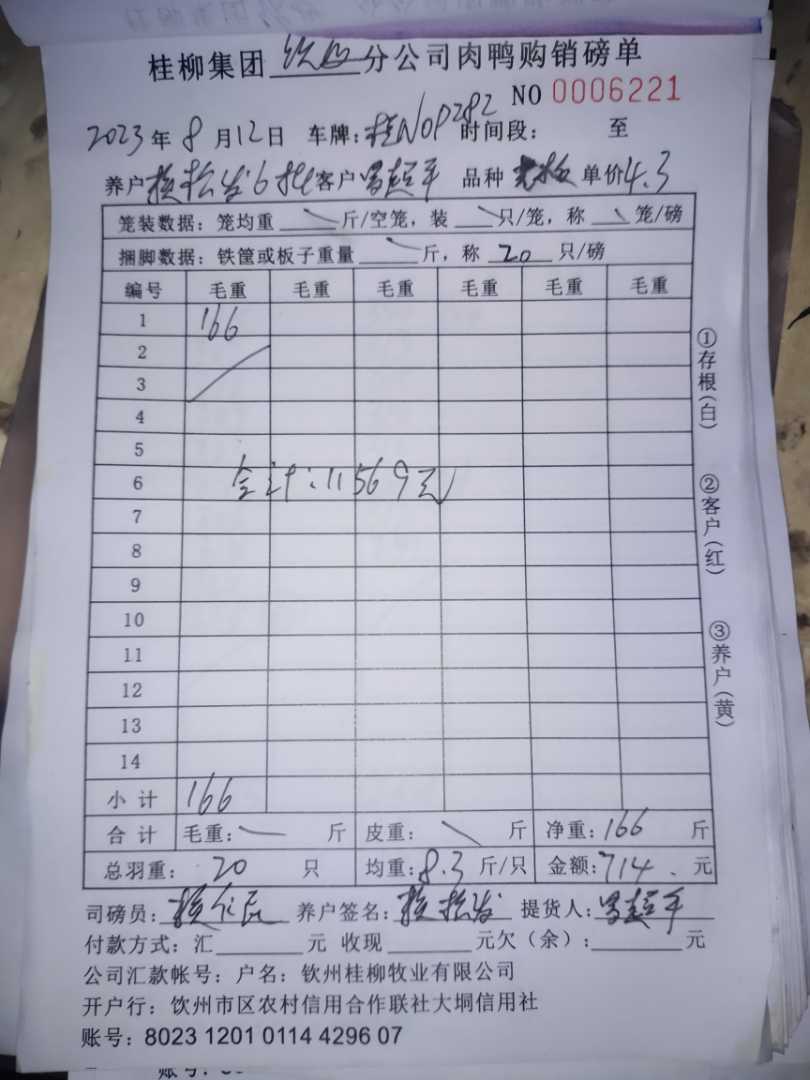 桂柳集团 钦州 分公司肉鸭购销磅单
NO 0006221
2023年8月12日 车牌:桂N0P282 时间段: 至
养户 松发6批 客户 超平 品种 老板 单价4.3
笼装数据:笼均重 斤/空笼,装 只/笼,称 笼/磅
捆脚数据:铁筐或板子重量 斤,称 20 只/磅
编号 毛重 毛重 毛重 毛重 毛重 毛重
1 166
2
3
4
5
6 合计:11569元
7
8
9
10
11
12
13
14
小计 166
合计 毛重: 斤 皮重: 斤 净重:166 斤
总羽重: 20 只 均重:8.3 斤/只 金额:714. 元
司磅员: 养户签名: 松发 提货人: 超平
付款方式:汇 元 收现 元欠(余): 元
公司汇款帐号:户名:钦州桂柳牧业有限公司
开户行:饮州市区农村信用合作联社大垌信用社
账号:8023 1201 0114 4296 07
①存根(白)
②客户(红)
③养户(黄)